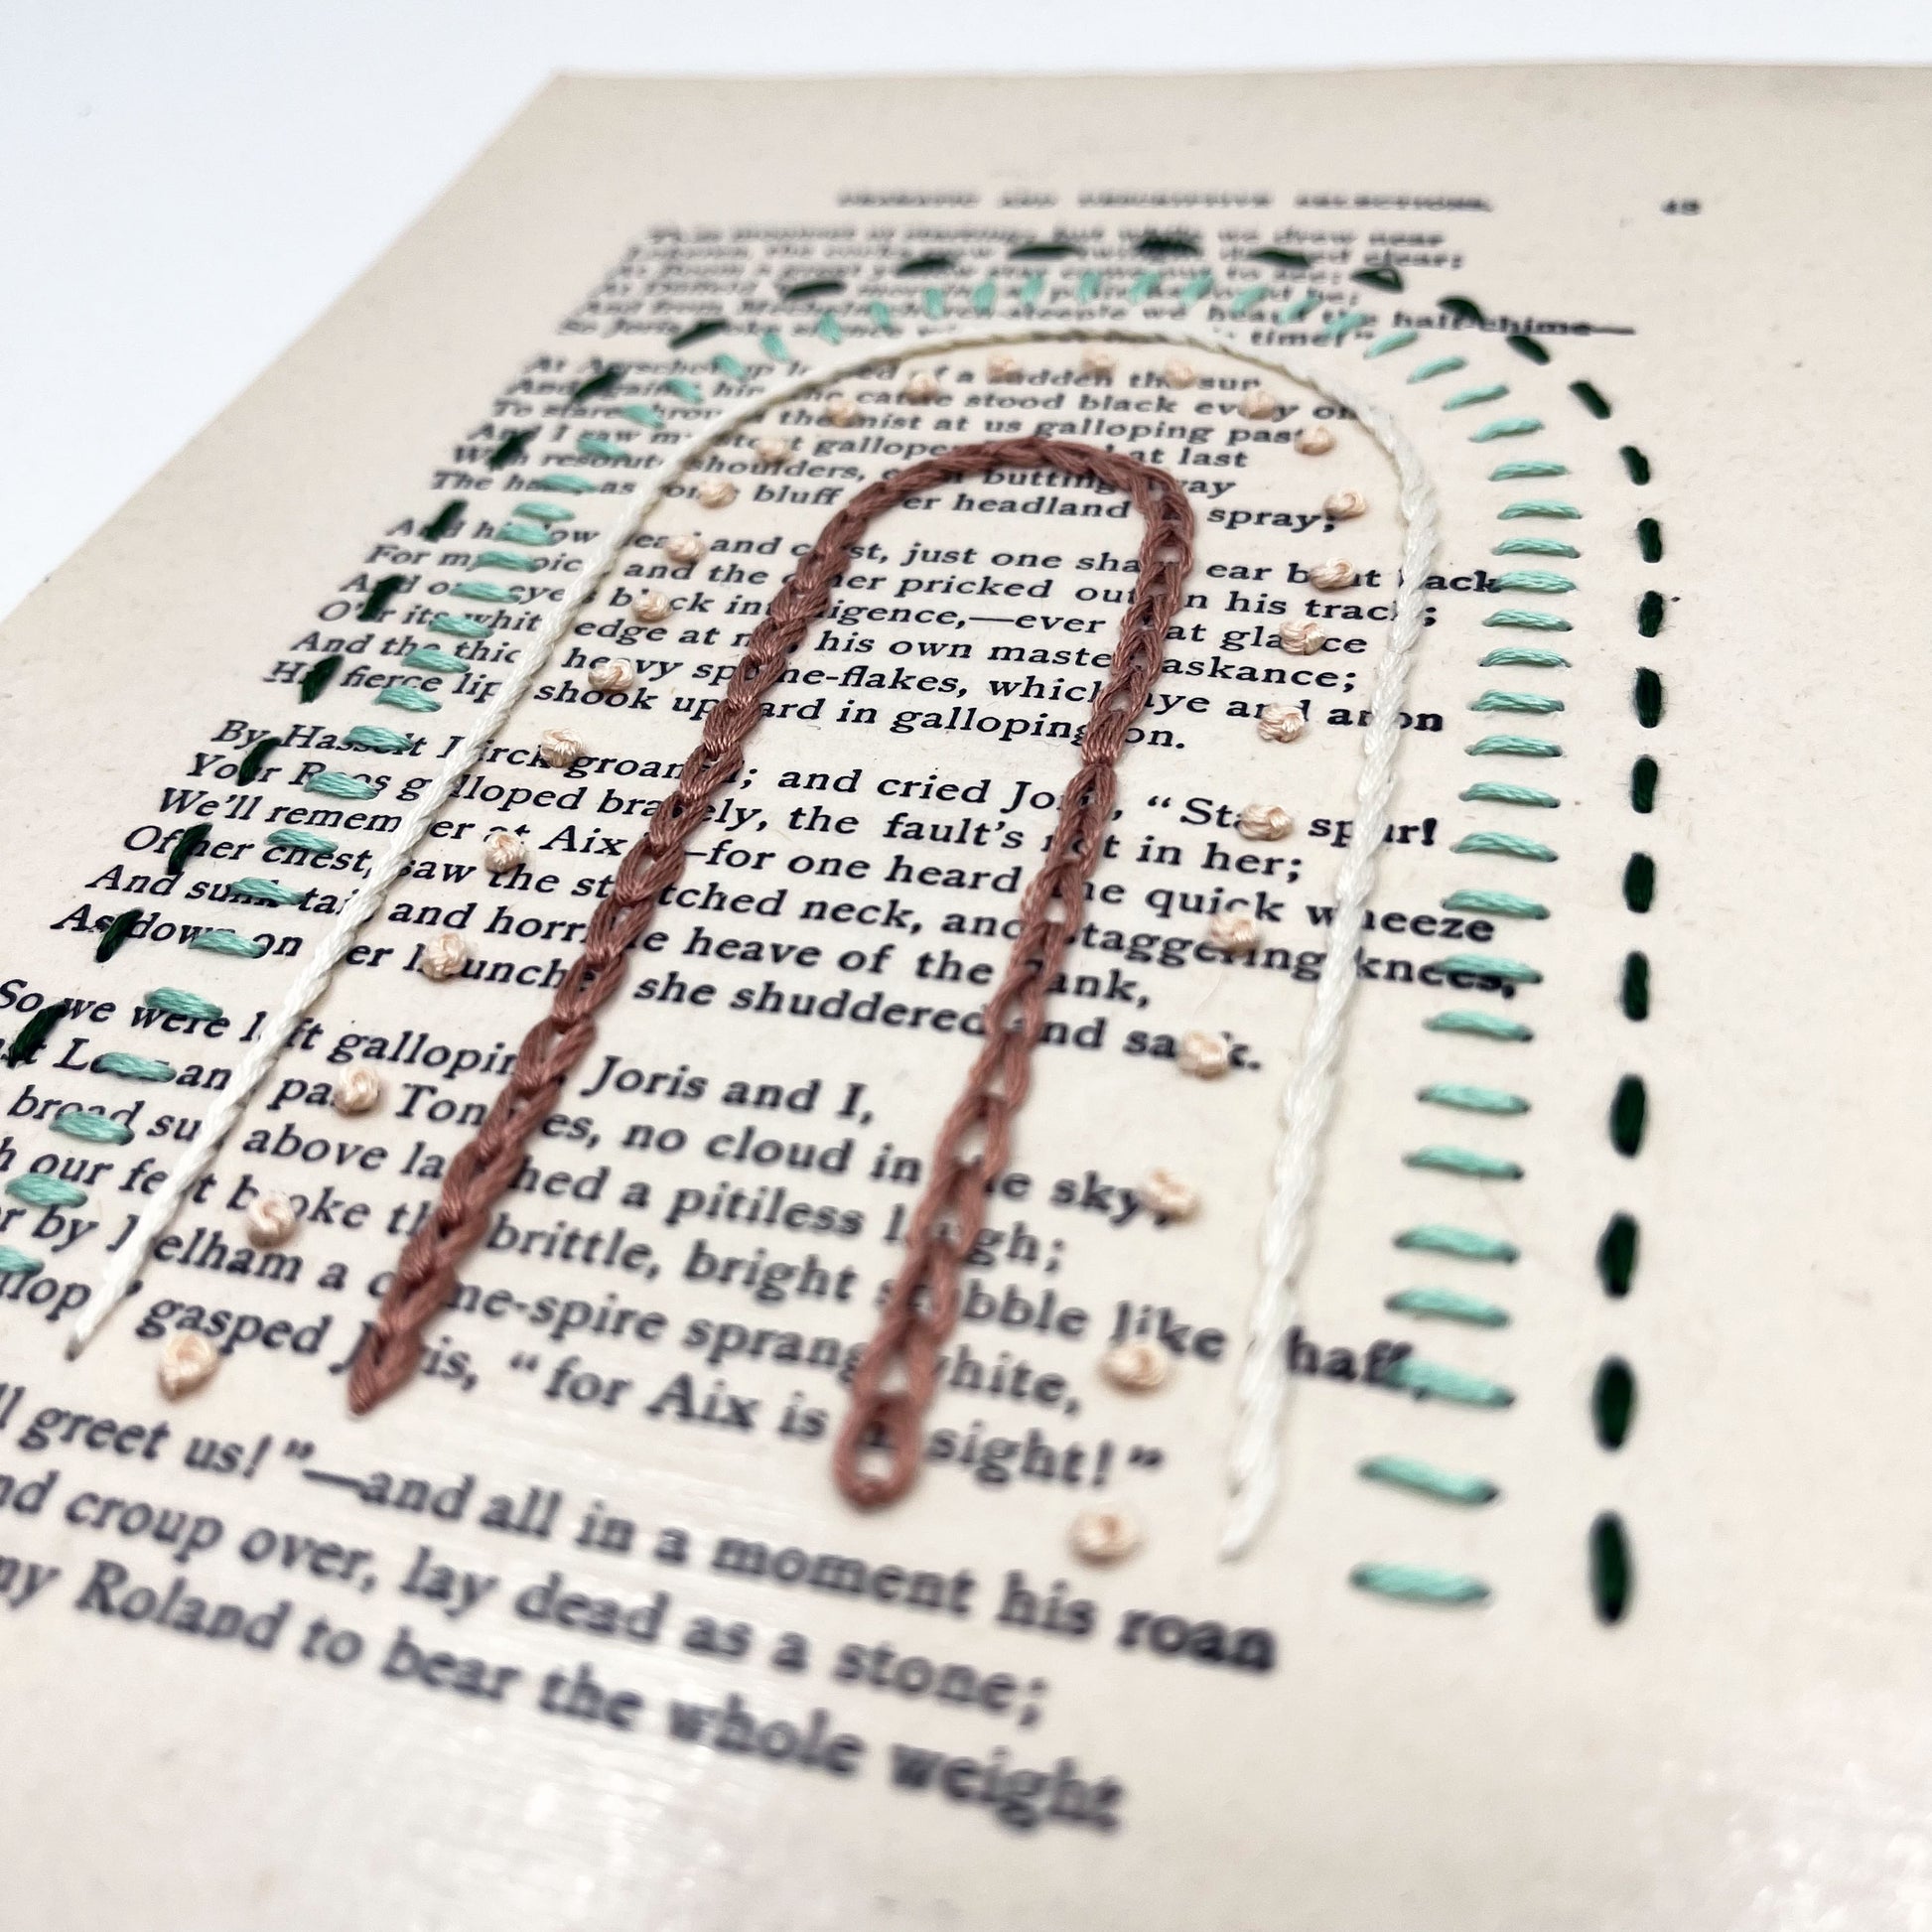 DESCRIPTIVE SELECTIONS. 49
but while we drew near
clear;
great yellow star came out to see;
be;
And from steeple we heard the half-chime—
So Joris broke silence time!”
At up of a sudden the sun,
And against him the cattle stood black every one,
To stare through the mist at us galloping past,
And I saw my stout galloper at last
With resolute shoulders, each butting away
The haze, as some bluff river headland its spray;
And his low head and crest, just one sharp ear bent back
For my voice, and the other pricked out on his track;
And one eye's black intelligence,—ever that glance
O'er its white edge at me, his own master, askance;
And the thick heavy spume-flakes, which aye and anon
His fierce lips shook upward in galloping on.
By Hasselt Dirck groaned; and cried Joris, “Stay spur!
Your Roos galloped bravely, the fault's not in her;
We'll remember at Aix”—for one heard the quick wheeze
Of her chest, saw the stretched neck, and staggering knees,
And sunk tail, and horrible heave of the flank,
As down on her haunches she shuddered and sank.
So we were left galloping, Joris and I,
and past Tongres, no cloud in the sky;
broad sun above laughed a pitiless laugh;
our feet broke the brittle, bright stubble like chaff;
by Delham a dome-spire sprang white,
gasped Joris, “for Aix is in sight!”
greet us!”—and all in a moment his roan
croup over, lay dead as a stone;
my Roland to bear the whole weight